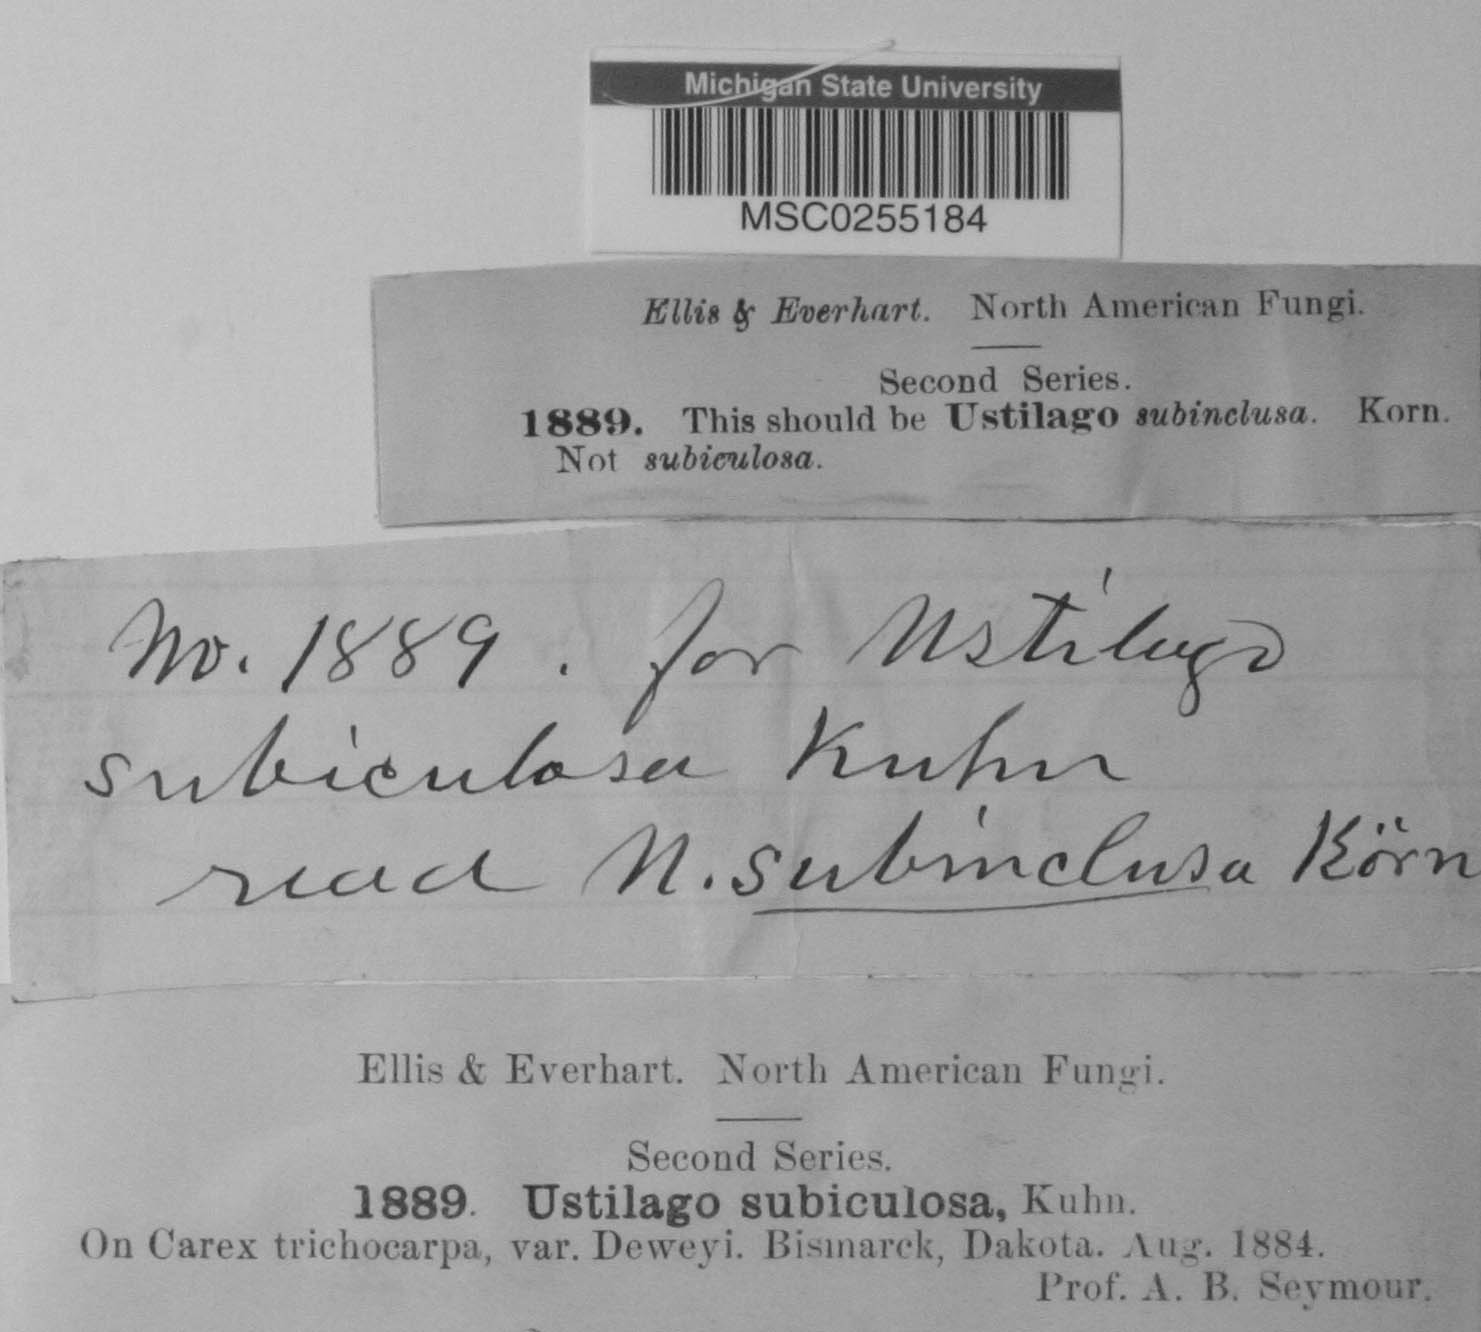 Michigan State University
MSC0255184
Ellis & Everhart. North American Fungi.
Second Series.
1889. This should be Ustilago subinclusa. Korn.
Not subiculosa.
No. 1889. for Ustilago
subiculosa Kuhn
read U. subinclusa Körn
Ellis & Everhart. North American Fungi.
Second Series.
1889. Ustilago subiculosa, Kuhn.
On Carex trichocarpa, var. Deweyi. Bismarck, Dakota. Aug. 1884.
Prof. A. B. Seymour.